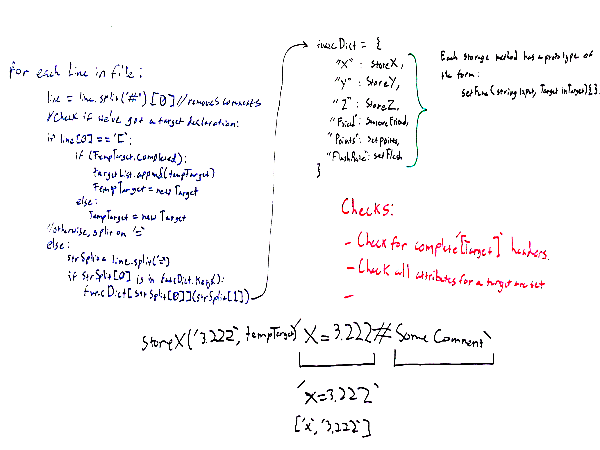 for each line in file:
line = line.split("#")[0] //removes comments
//Check if we've got a target declaration:
if line[0] == '[':
if (TempTarget.completed):
targetList.append(tempTarget)
TempTarget = new Target
else:
TempTarget = new Target
//otherwise, split on '='
else:
strSplit = line.split('=')
if strSplit[0] is in funcDict.keys():
funcDict[strSplit[0]](strSplit[1])
funcDict = {
"X": storeX,
"Y": StoreY,
"Z": StoreZ,
"Friend":
"Points": setpoints,
"FlashRate": setFlash
}
Each storage method has a prototype of
the form:
setFunc(string input, Target inTarget){};
Checks:
- Check for complete '[Target]' headers.
- Check all attributes for a target are set
-
storeX('3.222', tempTarget)
'X=3.222#Some Comment'
'x=3.222'
['x', '3.222']